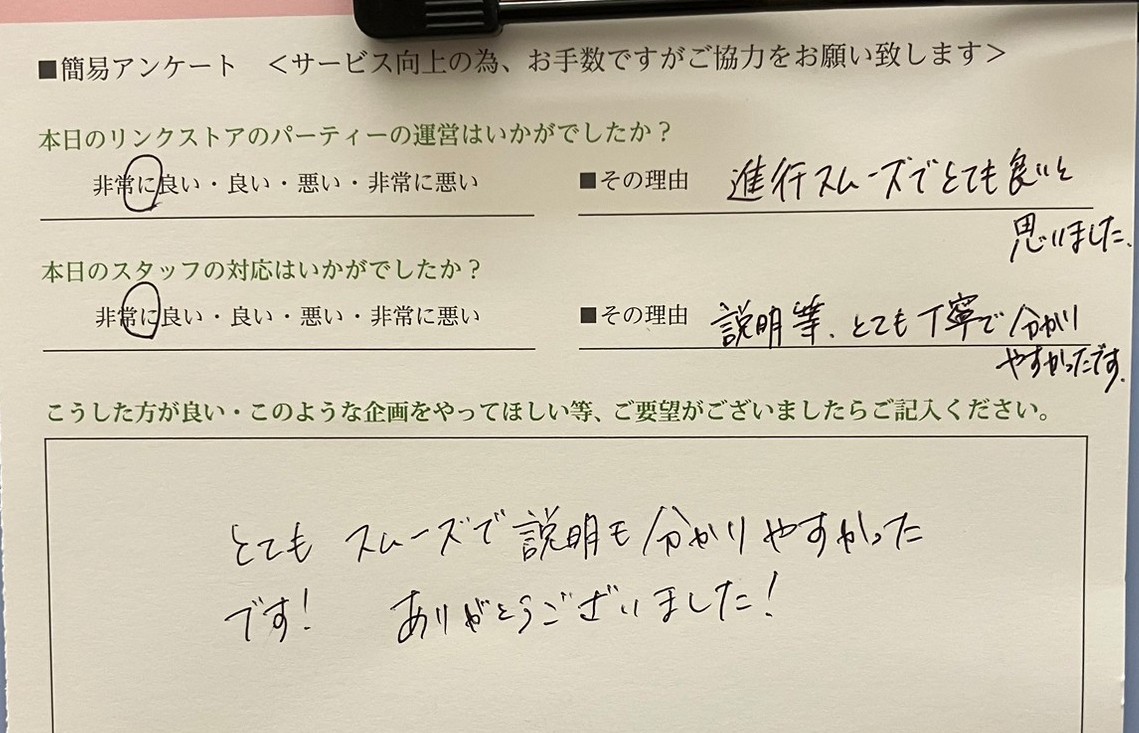 ■簡易アンケート　＜サービス向上の為、お手数ですがご協力をお願い致します＞
本日のリンクストアのパーティーの運営はいかがでしたか？
非常に良い・良い・悪い・非常に悪い　■その理由　進行スムーズでとても良いと
思いました.
本日のスタッフの対応はいかがでしたか？
非常に良い・良い・悪い・非常に悪い　■その理由　説明等、とても丁寧で分かり
やすかったです.
こうした方が良い・このような企画をやってほしい等、ご要望がございましたらご記入ください。
とても スムーズで説明も分かりやすかった
です！　ありがとうございました！